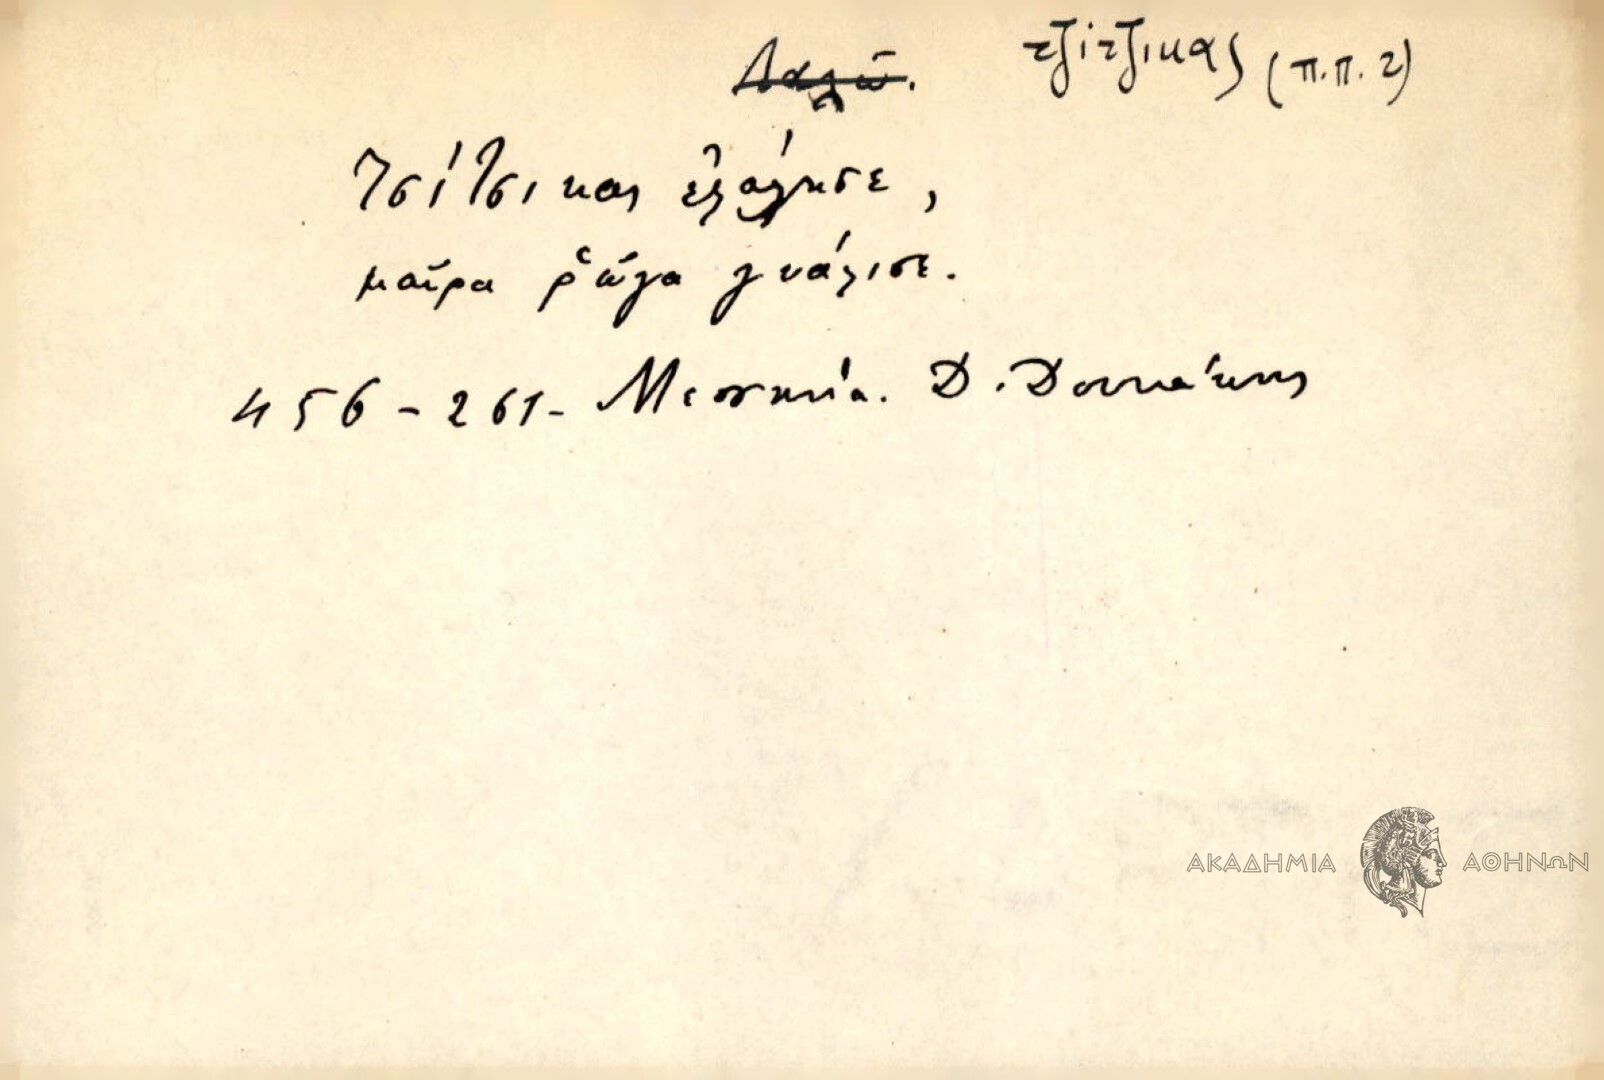 Λαλῶ. τζίτζικας (π.π. 2)
Τσίτσικας ἐλάλησε,
μαύρα ῥῶγα γυάλισε.
456 - 261 - Μεσσηνία. Δ. Δουκάκης
ΑΚΑΔΗΜΙΑ ΑΘΗΝΩΝ